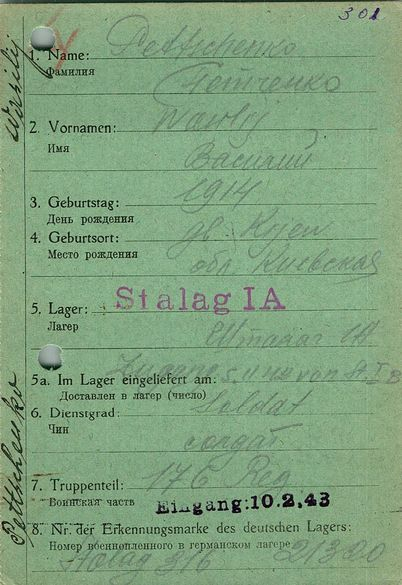 301
1. Name: Pettschenko
Фамилия
Петченко
2. Vornamen: Wasilij
Имя
Василий
3. Geburtstag: 1914
День рождения
4. Geburtsort: Kijew
Место рождения
обл. Киевская
5. Lager: Stalag IA
Лагерь
Шталаг IA
von St. I B
5a. Im Lager eingeliefert am:
Доставлен в лагерь (число)
6. Dienstgrad: Soldat
Чин
солдат
7. Truppenteil: 176 Reg
Воинская часть Eingang: 10.2.43
8. Nr. der Erkennungsmarke des deutschen Lagers:
Номер военнопленного в германском лагере
Stalag
Pettschenko Wasilij